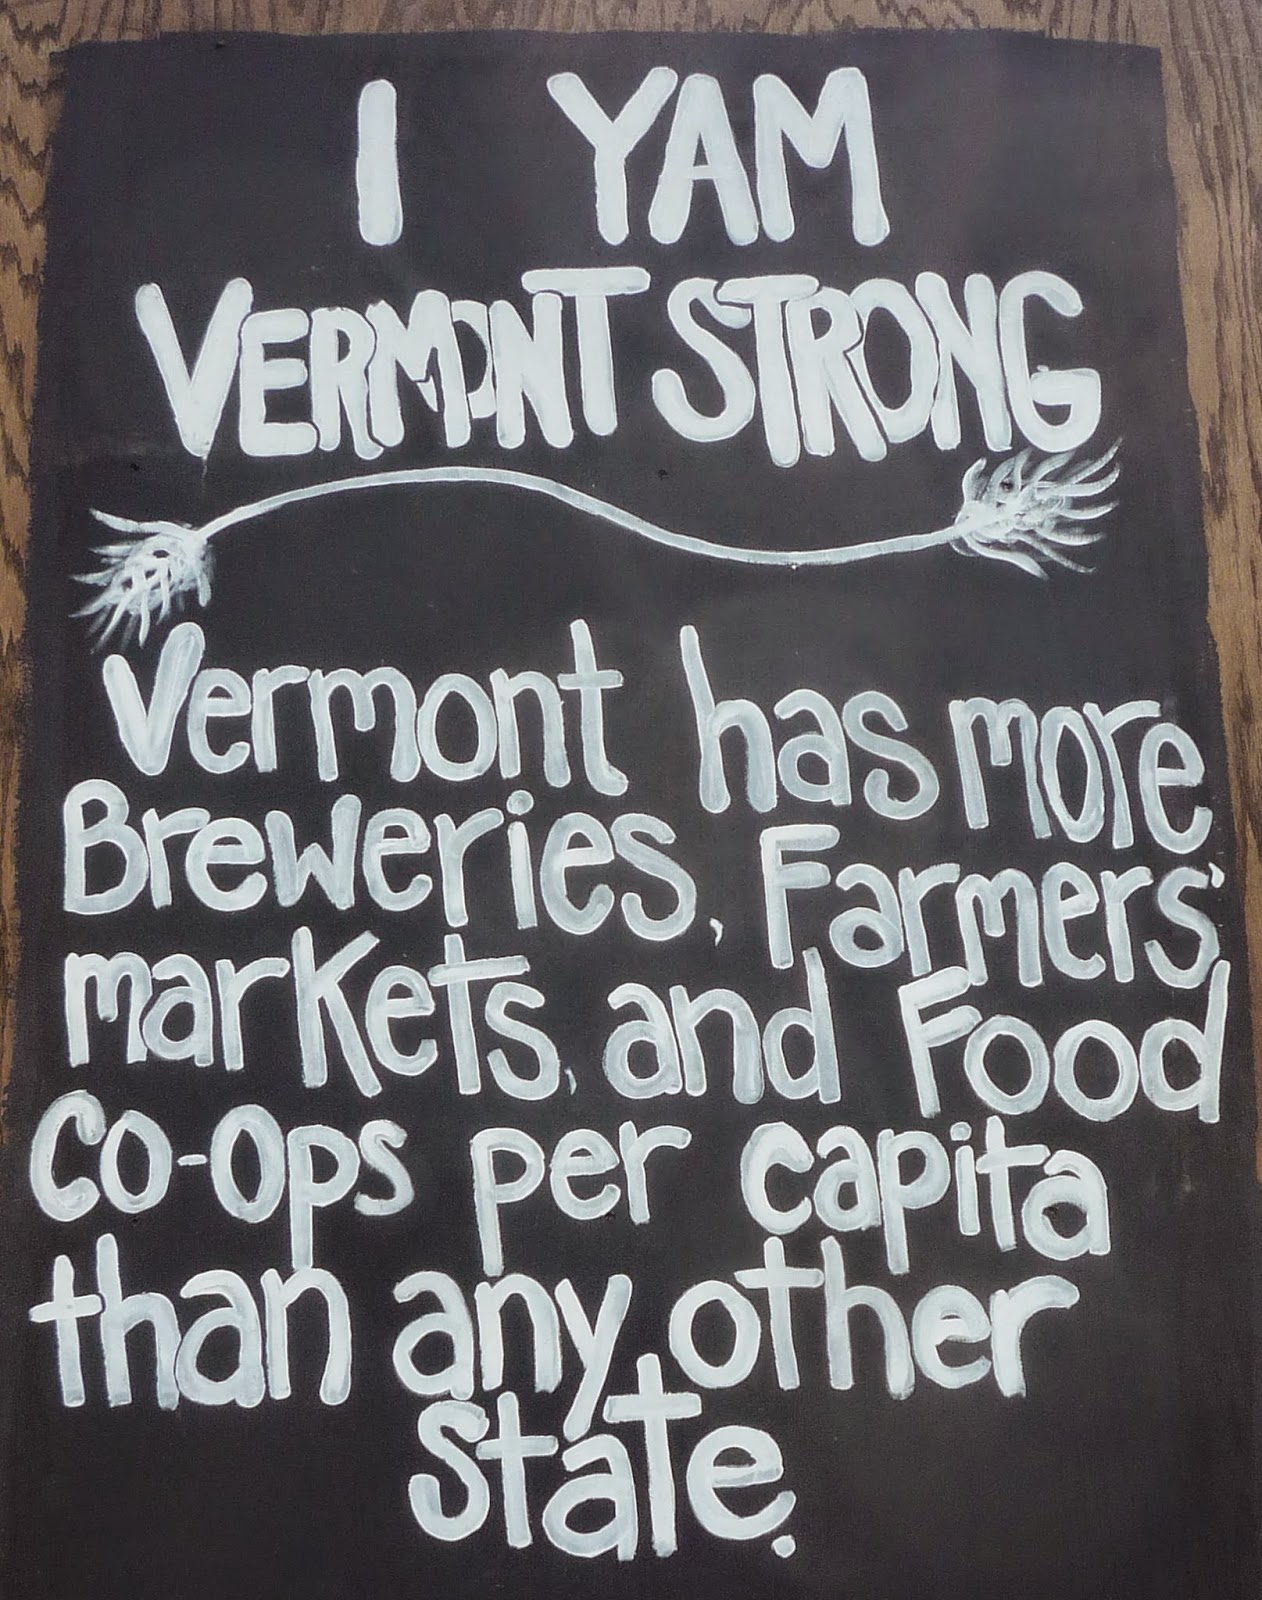 I YAM
VERMONT STRONG
Vermont has more
Breweries, Farmers'
markets, and Food
Co-ops per capita
than any other
state.